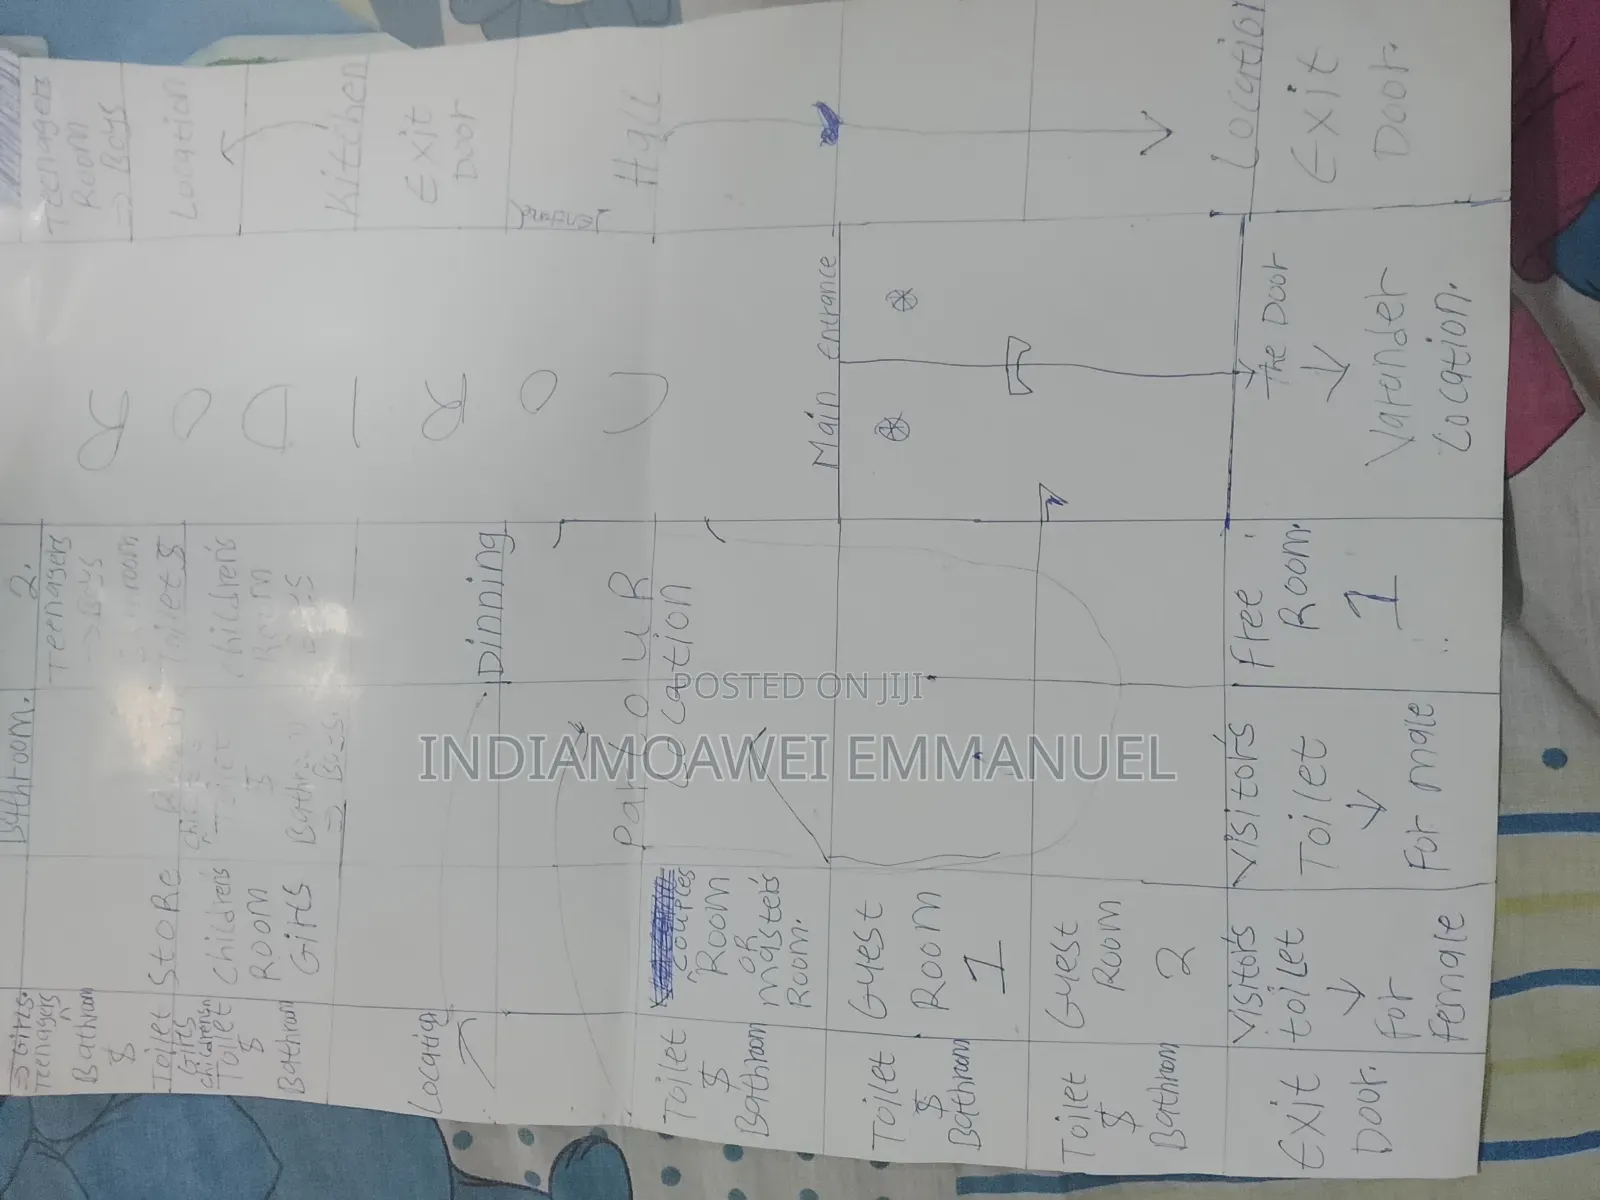 Teenagers
Room
⇒ Boys
Location
Kitchen
Exit
Door
Entrance
Hall
Location
Exit
Door.
CORIDOR
Main Entrance
The Door
Varander
Location.
2.
Teenagers
⇒ Boys
Toilet $
Children's
Room
Boys
Dinning
ParLOUR
Location
Free
Room.
1
Bathroom.
Toilet
$
Bathroom
⇒ Boys.
Visitors
Toilet
For male
STORE
Children's
ROOM
Girls
Couples
Room
or
Master's
Room.
Guest
Room
1
Guest
Room
2
Visitors
toilet
For
Female
⇒ Girls.
Teenagers
Bathroom
$
Toilet
Girls
Children's
Toilet
$
Bathroom
Location
Toilet
$
Bathroom
Toilet
$
Bathroom
Toilet
$
Bathroom
Exit
Door.
POSTED ON JIJI
INDIAMOAWEI EMMANUEL